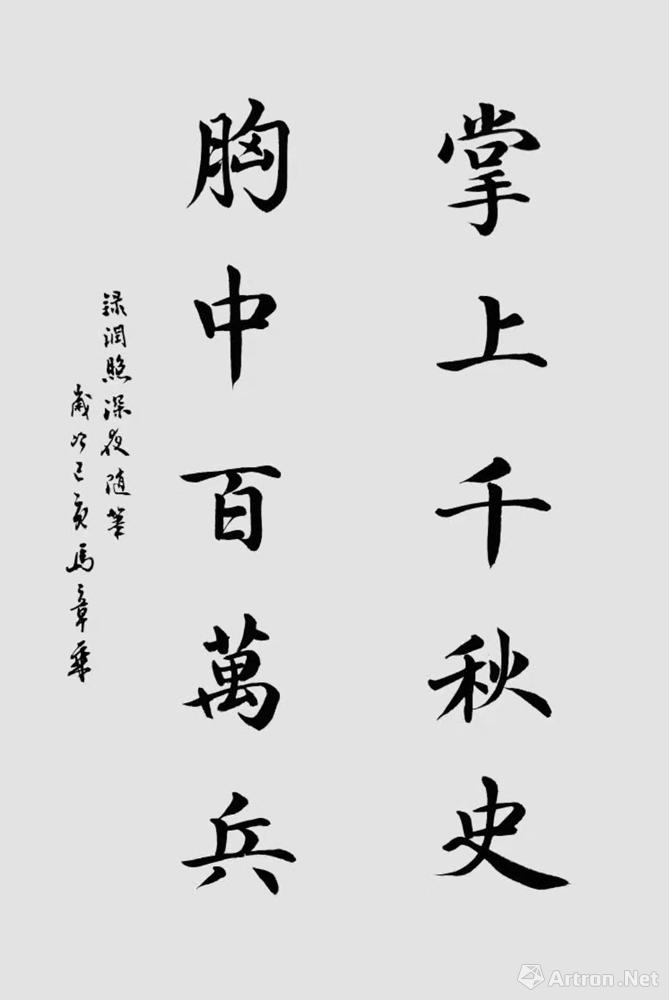 掌上千秋史
胸中百萬兵
録潤照深夜随筆
歲次己亥馬章乘
Artron.Net